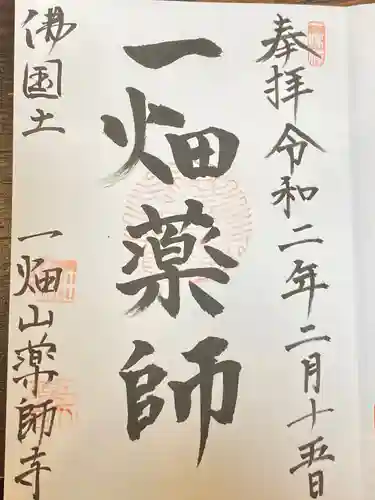 奉拝 令和二年二月十五日
一畑薬師
佛国土 一畑山薬師寺